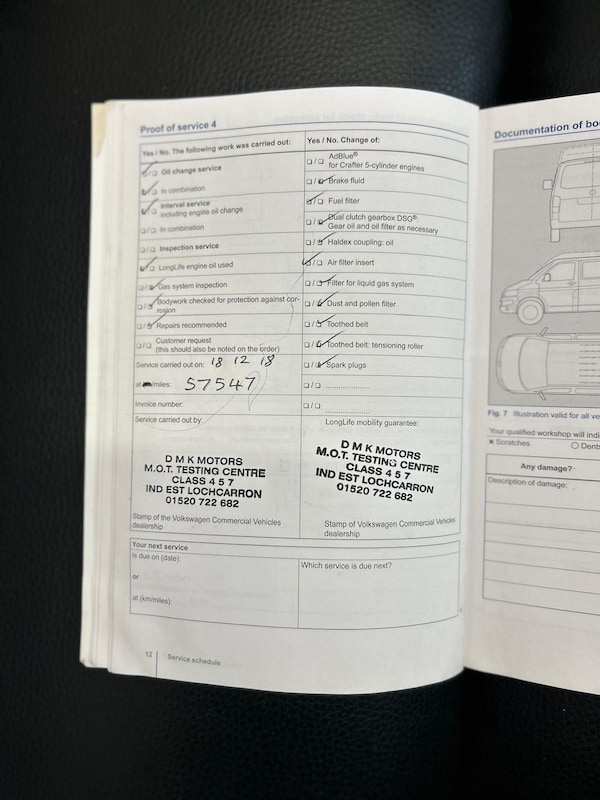 Proof of service 4
Yes / No. The following work was carried out:
Oil change service
In combination
Interval service
including engine oil change
In combination
Inspection service
LongLife engine oil used
Gas system inspection
Bodywork checked for protection against cor-
rosion
Repairs recommended
Customer request
(this should also be noted on the order)
Service carried out on: 18 12 18
at km/miles: 57547
Invoice number:
Service carried out by:
D M K MOTORS
M.O.T. TESTING CENTRE
CLASS 4 5 7
IND EST LOCHCARRON
01520 722 682
Stamp of the Volkswagen Commercial Vehicles
dealership
Yes / No. Change of:
AdBlue®
for Crafter 5-cylinder engines
Brake fluid
Fuel filter
Dual clutch gearbox DSG®:
Gear oil and oil filter as necessary
Haldex coupling: oil
Air filter insert
Filter for liquid gas system
Dust and pollen filter
Toothed belt
Toothed belt: tensioning roller
Spark plugs
LongLife mobility guarantee:
D M K MOTORS
M.O.T. TESTING CENTRE
CLASS 4 5 7
IND EST LOCHCARRON
01520 722 682
Stamp of Volkswagen Commercial Vehicles
dealership
Your next service
Is due on (date):
or
at (km/miles):
Which service is due next?
12 Service schedule
Documentation of bo
Fig. 7 Illustration valid for all ve
Your qualified workshop will indi
× Scratches
O Dents
Any damage?
Description of damage: